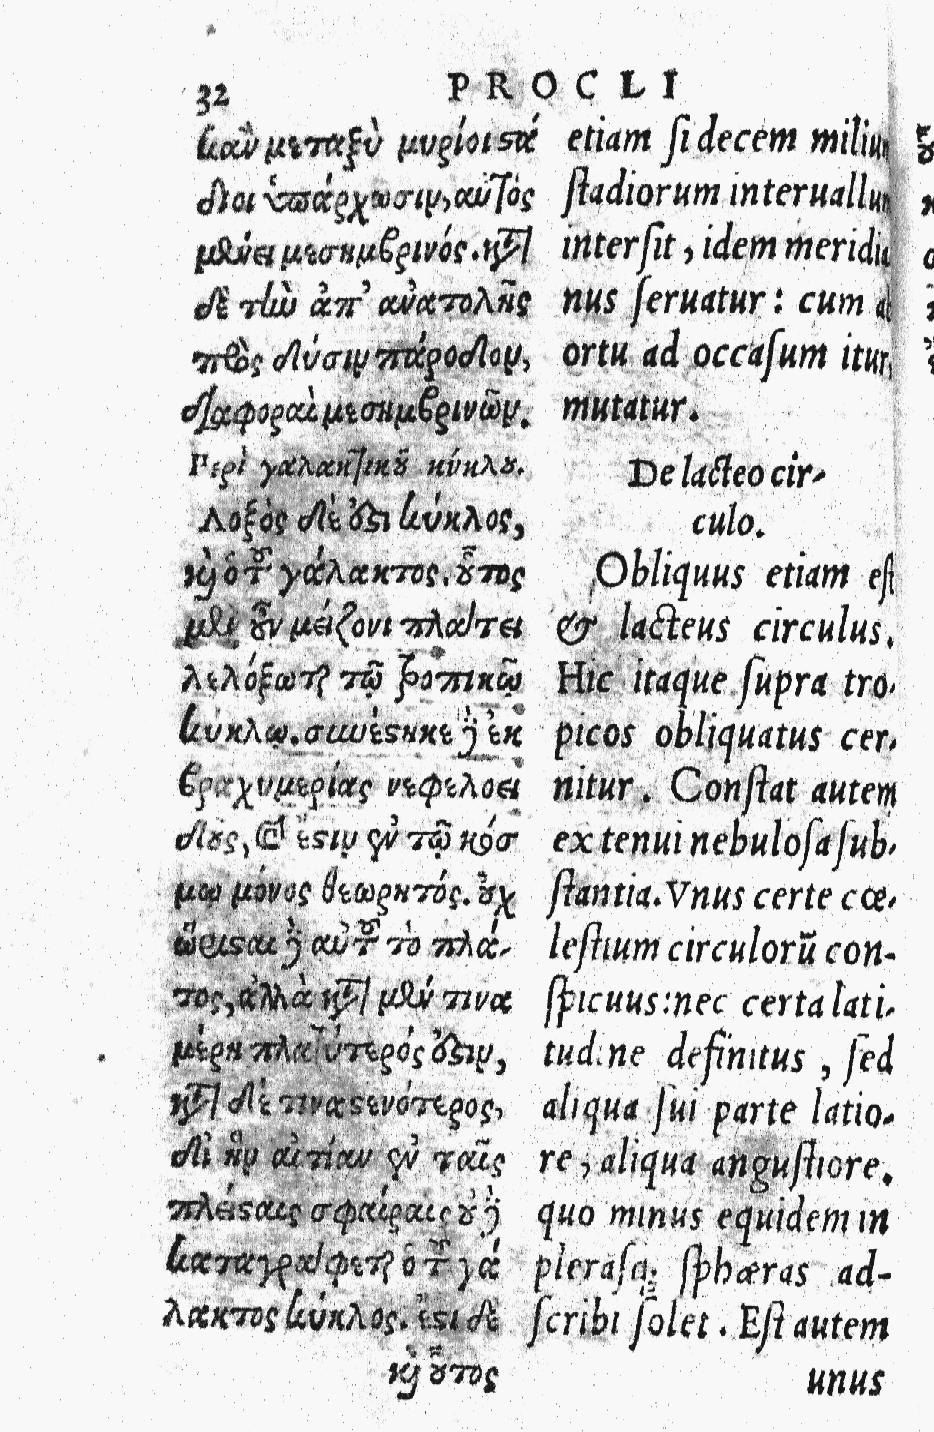 32 PROCLI
κἂν μεταξὺ μυρίοι στά
διοι ὑπάρχωσιν, αὐτὸς
μένει μεσημβρινός. κατὰ
δὲ τὴν ἀπ’ ἀνατολῆς
πρὸς δύσιν πάροδον,
διαφοραὶ μεσημβρινῶν.
Περὶ γαλακτικοῦ κύκλου.
Λοξὸς δέ ἐστι κύκλος,
καὶ ὁ τοῦ γάλακτος. οὗτος
μὲν οὖν μείζονι πλάτει
λελόξωται τῷ τροπικῷ
κύκλῳ. συνέστηκε δὲ ἐκ
βραχυμερίας νεφελοει
δοῦς, καὶ ἔστιν ἐν τῷ κόσ
μῳ μόνος θεωρητός. οὐχ
ὥρισται δὲ αὐτοῦ τὸ πλά-
τος, ἀλλὰ κατὰ μέν τινα
μέρη πλατύτερός ἐστιν,
κατὰ δέ τινα στενότερος,
δι’ ἣν αἰτίαν ἐν ταῖς
πλείσταις σφαίραις οὐδὲ
καταγράφεται ὁ τοῦ γά
λακτος κύκλος. ἔστι δὲ
καὶ οὗτος
etiam ſi decem milium
ſtadiorum interuallum
interſit, idem meridia
nus ſeruatur: cum ab
ortu ad occaſum itur,
mutatur.
De lacteo cir-
culo.
Obliquus etiam eſt
& lacteus circulus.
Hic itaque ſupra tro-
picos obliquatus cer-
nitur. Conſtat autem
ex tenui nebuloſa ſub-
ſtantia. Vnus certe cœ-
leſtium circulorũ con-
ſpicuus: nec certa lati-
tudine definitus, ſed
aliqua ſui parte latio-
re, aliqua anguſtiore.
quo minus equidem in
pleraſq; ſphæras ad-
ſcribi ſolet. Eſt autem
unus